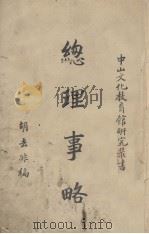 中山文化教育館研究叢書
總理事略
胡去非編
mtoou.info